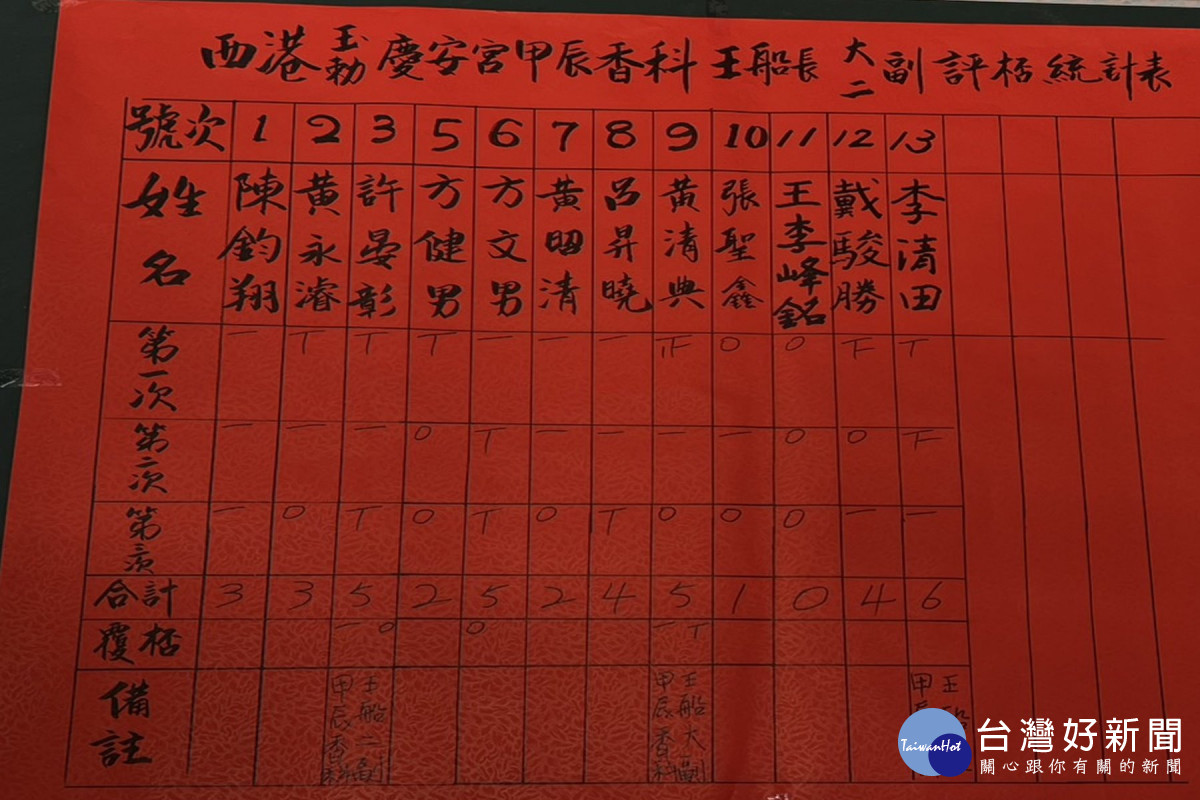 西港玉勅慶安宮甲辰香科王船長大二副評桮統計表
號次 1 2 3 5 6 7 8 9 10 11 12 13
姓名 陳鈞翔 黃永濬 許晏彰 方健男 方文男 黃昭清 呂昇曉 黃清典 張聖鑫 王李峰銘 戴駿勝 李清田
第一次 一 丅 丅 丅 一 一 一 正 0 0 下 丅
第二次 一 一 一 0 丅 一 一 一 一 0 0 下
第三次 一 0 丅 0 丅 0 丅 0 0 0 一 一
合計 3 3 5 2 5 2 4 5 1 0 4 6
覆桮 一 0 0 一 丅
備註 甲辰香科王船二副 甲辰香科王船大副 甲辰 王船
TaiwanHot
台灣好新聞
關心跟你有關的新聞